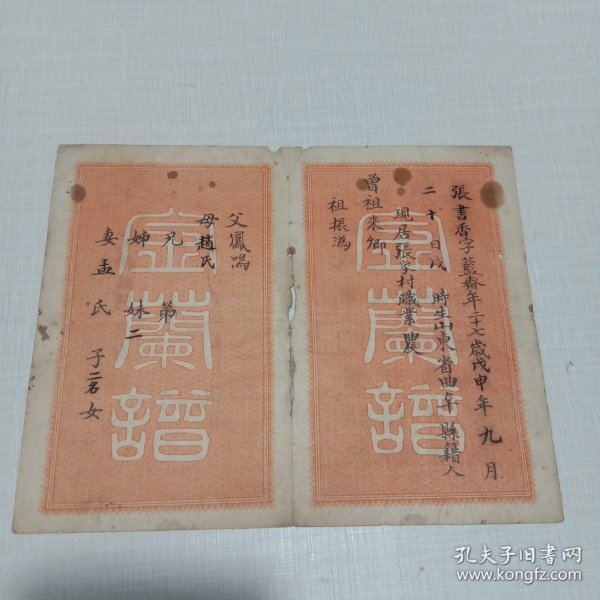 張書香字藍齋年二十七歲戊申年九月
二十日戌時生山東省曲阜縣籍人
現居張家村職業農
曾祖來卿
祖振為
父鳳鳴
母趙氏
兄弟
姊妹二
妻孟氏子二名女
金蘭譜
金蘭譜
孔夫子旧书网
www.kongfz.com